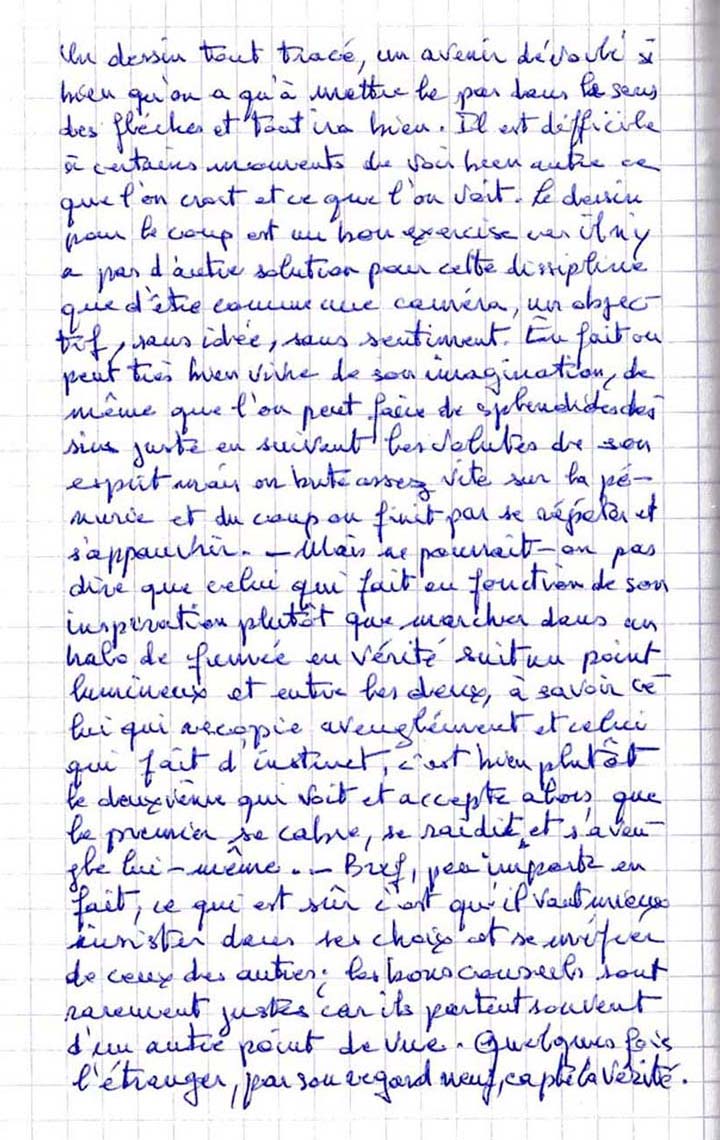 Un dessin tout tracé, un avenir dévoilé si
bien qu'on a qu'à mettre le pas dans le sens
des flèches et tout ira bien. Il est difficile
à certains moments de voir bien autre ce
que l'on croit et ce que l'on voit. Le dessin
pour le coup est un bon exercise car il n'y
a pas d'autre solution pour cette dissipline
que d'être comme une caméra, un objec-
tif, sans idée, sans sentiment. En fait on
peut très bien vivre de son imagination, de
même que l'on peut faire de splendides des
sins juste en suivant les volutes de son
esprit mais on bute assez vite sur la pé-
nurie et du coup on finit par se répéter et
s'appauvrir. – Mais ne pourrait-on pas
dire que celui qui fait en fonction de son
inspiration plutôt que marcher dans un
halo de fumée en vérité suit un point
lumineux et entre les deux, à savoir ce
lui qui recopie aveuglément et celui
qui fait d'instinct, c'est bien plutôt
le deuxième qui voit et accepte alors que
le premier se cabre, se raidit et s'aveu-
gle lui-même. – Bref, peu importe en
fait, ce qui est sûr c'est qu'il vaut mieux
insister dans ses choix et se méfier
de ceux des autres; les bons conseils sont
rarement justes car ils partent souvent
d'un autre point de vue. Quelques fois
l'étranger, par son regard neuf, capte la vérité.